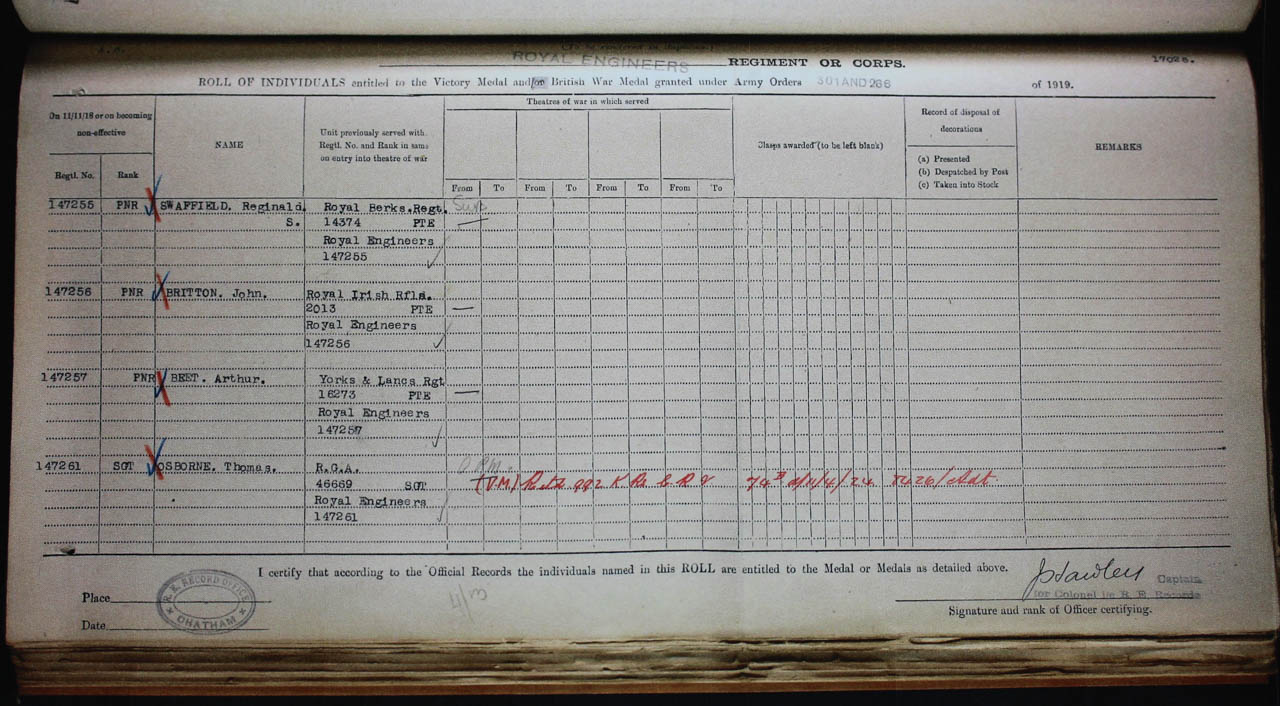 ROYAL ENGINEERS REGIMENT OR CORPS.
ROLL OF INDIVIDUALS entitled to the Victory Medal and/or British War Medal granted under Army Orders 301 AND 266 of 1919.
On 11/11/18 or on becoming non-effective
Regtl. No. Rank
NAME
Unit previously served with.
Regtl. No. and Rank in same
on entry into theatre of war
Theatres of war in which served
From To From To From To From To
Clasps awarded (to be left blank)
Record of disposal of
decorations
(a) Presented
(b) Despatched by Post
(c) Taken into Stock
REMARKS
147255 PNR SWAFFIELD. Reginald. Royal Berks.Regt.
S. 14374 PTE
Royal Engineers
147255
147256 PNR BRITTON. John. Royal Irish Rfls.
2013 PTE
Royal Engineers
147256
147257 PNR BEET. Arthur. Yorks & Lancs Rgt
16273 PTE
Royal Engineers
147257
147261 SGT OSBORNE, Thomas. R.G.A.
46669 SGT
(V.M)
Royal Engineers
147261
I certify that according to the Official Records the individuals named in this ROLL are entitled to the Medal or Medals as detailed above.
Place
R.E. RECORD OFFICE
CHATHAM
Date
4/3
Captain
for Colonel i/c R. E. Records
Signature and rank of Officer certifying.